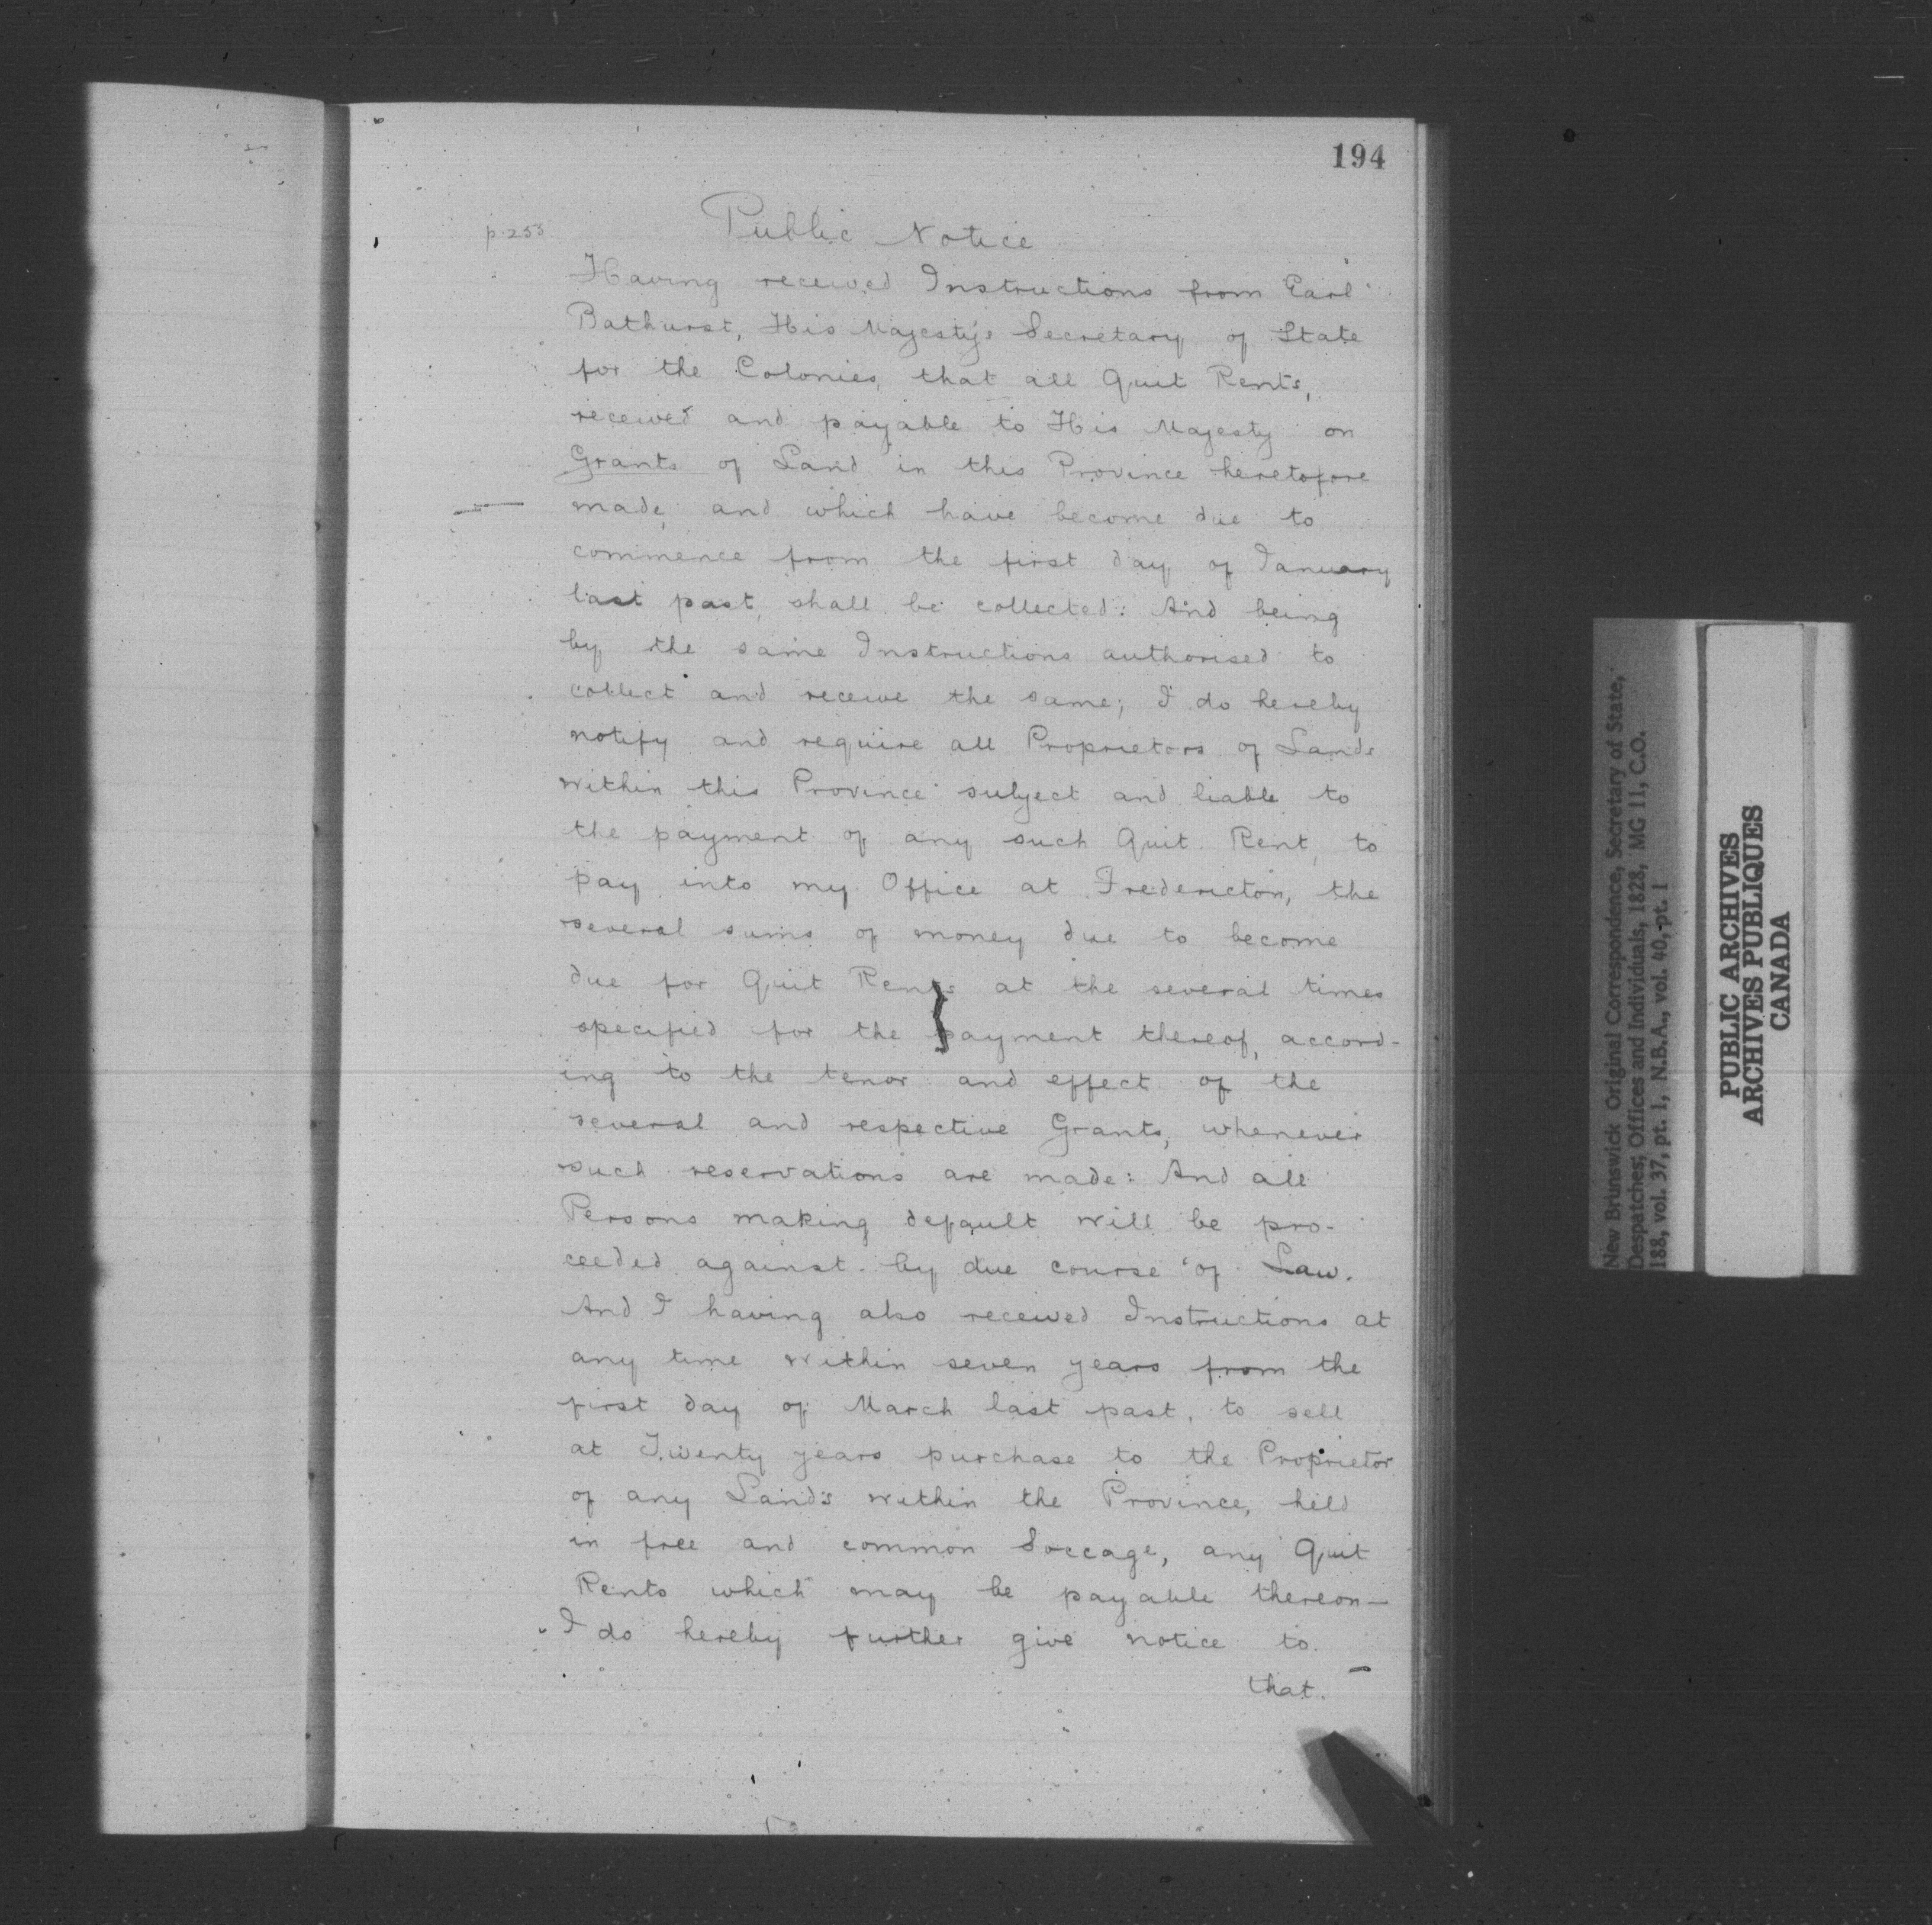 194
p. 253
Public Notice
Having received Instructions from Earl
Bathurst, His Majesty's Secretary of State
for the Colonies, that all Quit Rents,
received and payable to His Majesty on
Grants of Land in this Province heretofore
made, and which have become due to
commence from the first day of January
last past, shall be collected: And being
by the same Instructions authorised to
collect and receive the same; I do hereby
notify and require all Proprietors of Lands
within this Province subject and liable to
the payment of any such Quit Rent, to
pay into my Office at Fredericton, the
several sums of money due to become
due for Quit Rents at the several times
specified for the payment thereof, accord-
ing to the tenor and effect of the
several and respective Grants, whenever
such reservations are made: And all
Persons making default will be pro-
ceeded against by due course of Law.
And I having also received Instructions at
any time within seven years from the
first day of March last past, to sell
at Twenty years purchase to the Proprietor
of any Lands within the Province, held
in free and common Soccage, any Quit
Rents which may be payable thereon—
I do hereby further give notice to
that.
New Brunswick Original Correspondence, Secretary of State,
Despatches; Offices and Individuals, 1828, MG 11, C.O.
188, vol. 37, pt. 1, N.B.A., vol. 40, pt. 1
PUBLIC ARCHIVES
ARCHIVES PUBLIQUES
CANADA